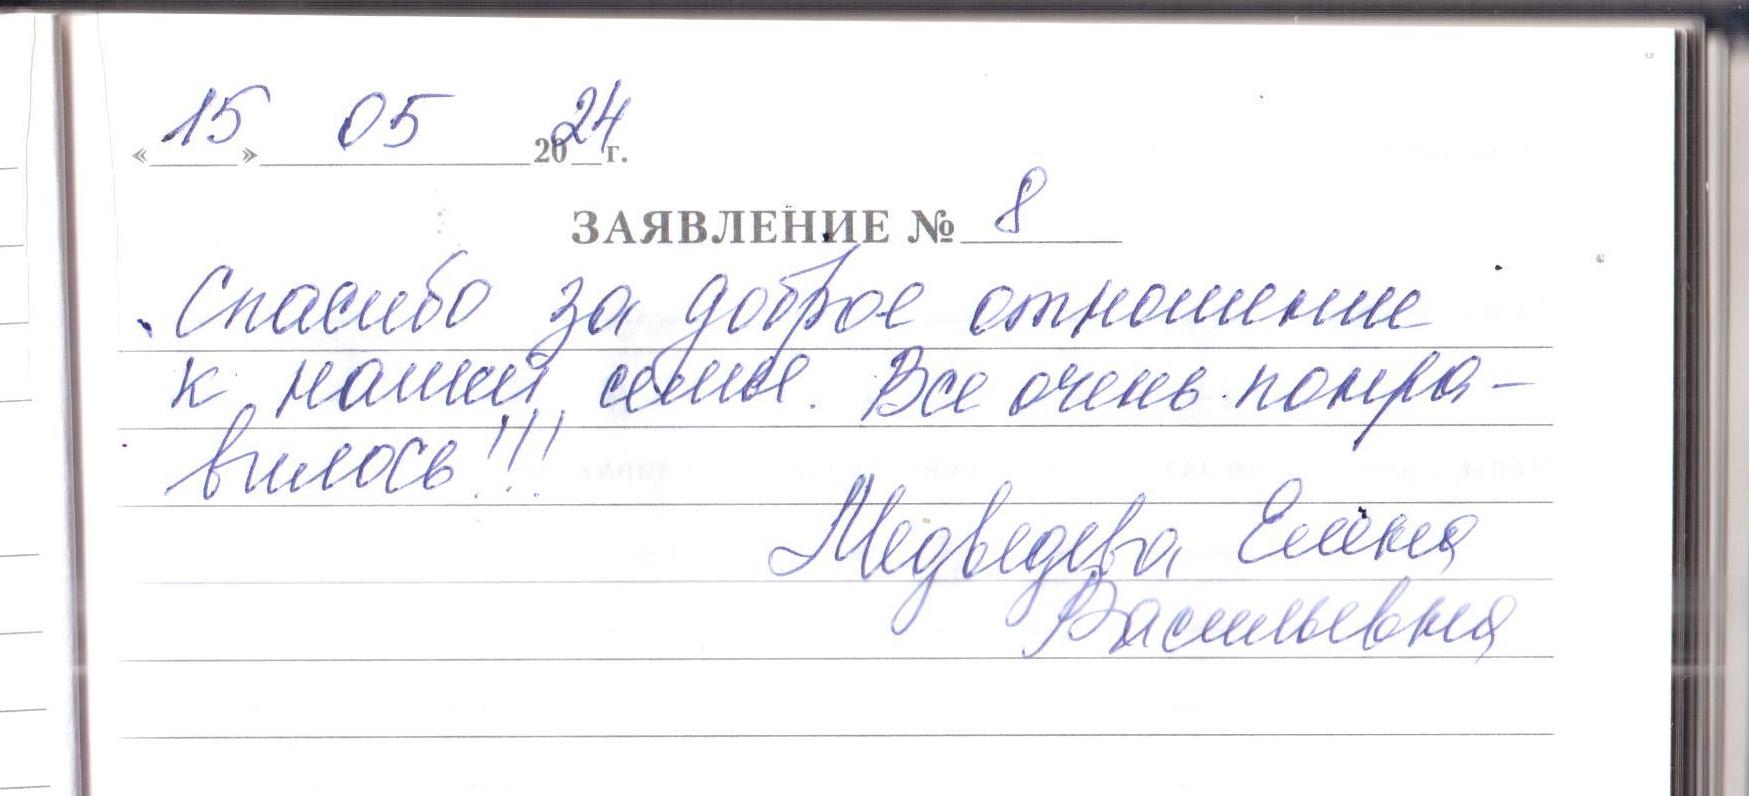 «15» 05 2024 г.
ЗАЯВЛЕНИЕ № 8
Спасибо за доброе отношение
к нашей семье. Все очень понра-
вилось!!!
Медведева Елена
Васильевна